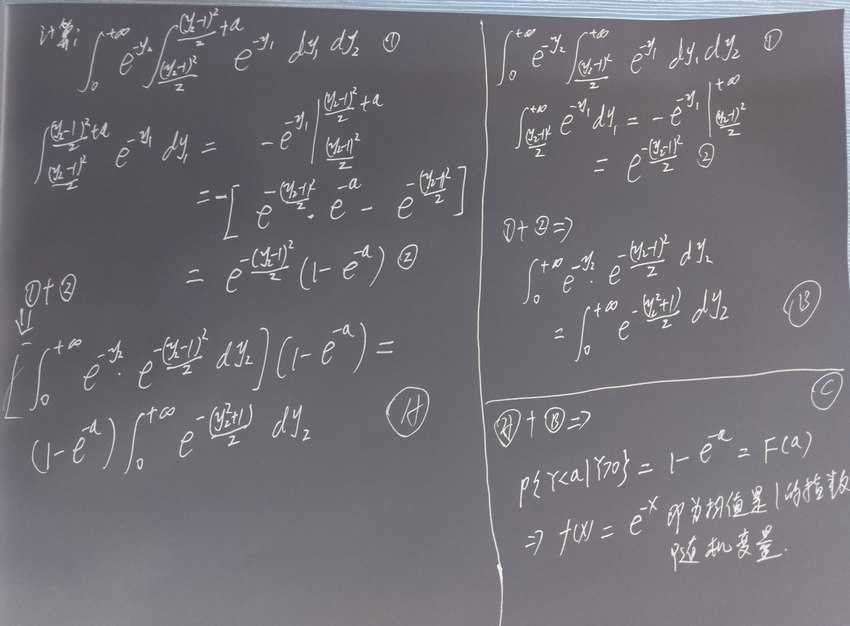 计算: ∫₀^{+∞} e^{-y₂} ∫_{(y₂-1)²/2}^{(y₂-1)²/2 + a} e^{-y₁} dy₁ dy₂ ①
∫_{(y₂-1)²/2}^{(y₂-1)²/2 + a} e^{-y₁} dy₁ = -e^{-y₁} |_{(y₂-1)²/2}^{(y₂-1)²/2 + a}
= -[e^{-(y₂-1)²/2} · e^{-a} - e^{-(y₂-1)²/2}]
= e^{-(y₂-1)²/2} (1-e^{-a}) ②
①+②
⇓
[∫₀^{+∞} e^{-y₂} · e^{-(y₂-1)²/2} dy₂] (1-e^{-a}) =
(1-e^{-a}) ∫₀^{+∞} e^{-(y₂²+1)/2} dy₂ Ⓐ
∫₀^{+∞} e^{-y₂} ∫_{(y₂-1)²/2}^{+∞} e^{-y₁} dy₁ dy₂ ①
∫_{(y₂-1)²/2}^{+∞} e^{-y₁} dy₁ = -e^{-y₁} |_{(y₂-1)²/2}^{+∞}
= e^{-(y₂-1)²/2} ②
①+② ⇒
∫₀^{+∞} e^{-y₂} · e^{-(y₂-1)²/2} dy₂
= ∫₀^{+∞} e^{-(y₂²+1)/2} dy₂ Ⓑ
Ⓒ
Ⓐ + Ⓑ ⇒
P{Y<a|Y>0} = 1-e^{-a} = F(a)
⇒ f(x) = e^{-x} 即为均值是1的指数
随机变量.